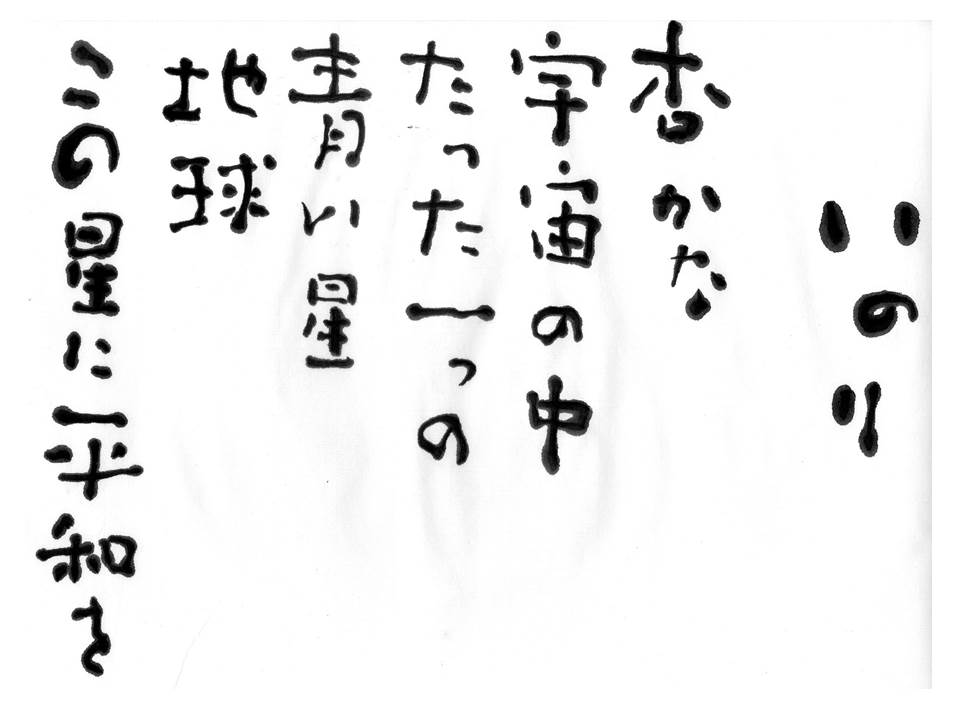 いのり
杳かな
宇宙の中
たった一つの
青い星
地球
この星に平和を